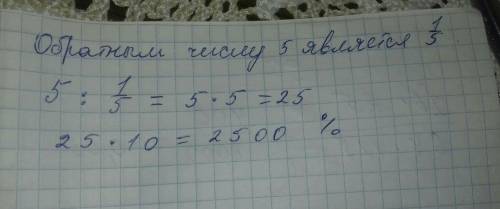 Обратным числу 5 является 1/5
5 : 1/5 = 5 · 5 = 25
25 · 10 = 2500 %